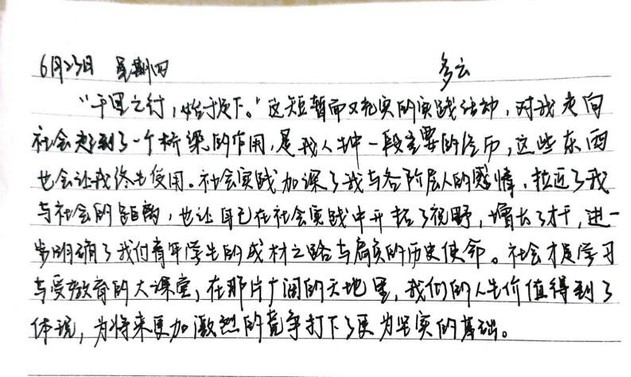 6月23日 星期四 多云
"千里之行,始于足下。"这短暂而又充实的实践活动,对我走向
社会起到了一个桥梁的作用,是我人生中一段重要的经历,这些东西
也会让我终生使用。社会实践加深了我与各阶层人的感情,拉近了我
与社会的距离,也让自己在社会实践中开拓了视野,增长了才干,进一
步明确了我们青年学生的成材之路与肩负的历史使命。社会才是学习
与受教育的大课堂,在那片广阔的天地里,我们的人生价值得到了
体现,为将来更加激烈的竞争打下了更为坚实的基础。